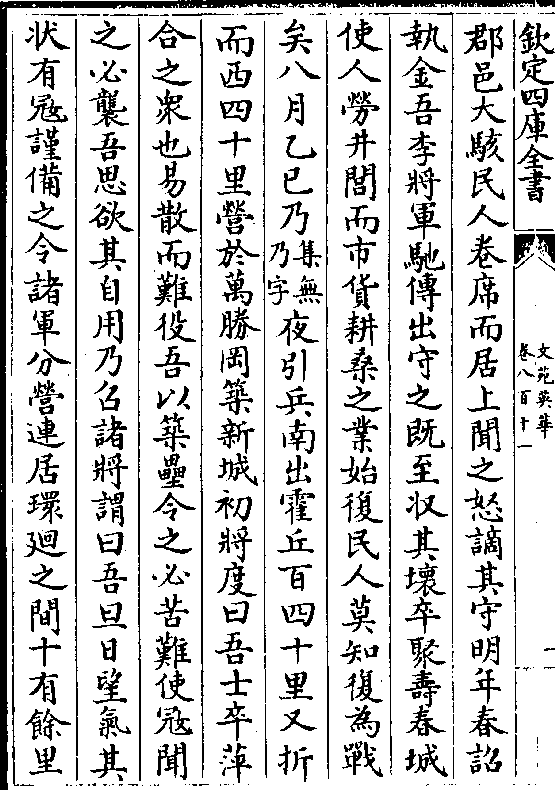 欽定四庫全書
文苑英華
卷八百十一
郡邑大駭民人卷席而居上聞之怒謫其守明年春詔
執金吾李將軍馳傳出守之既至收其壞卒聚壽春城
使人勞井閭而市貨耕桑之業始復民人莫知復為戰
矣八月乙巳乃集無乃字夜引兵南出霍丘百四十里又折
而西四十里營於萬勝岡築新城初將度曰吾士卒萍
合之衆也易散而難役吾以築壘令之必苦難使冦聞
之必襲吾思欲其自用乃召諸將謂曰吾旦日望氣其
狀有冦謹備之令諸軍分營連居環廻之間十有餘里